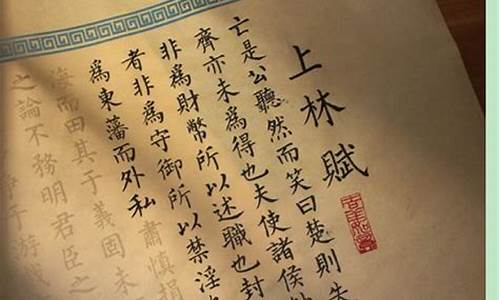 上林賦
亡是公聽然而笑曰楚則失
齊亦未爲得也夫使諸侯納
非爲財幣所以述職也封
者非爲守御所以禁淫也
爲東藩而外私肅慎捐
海而田其于義固未
之論不務明君臣之
于游戲